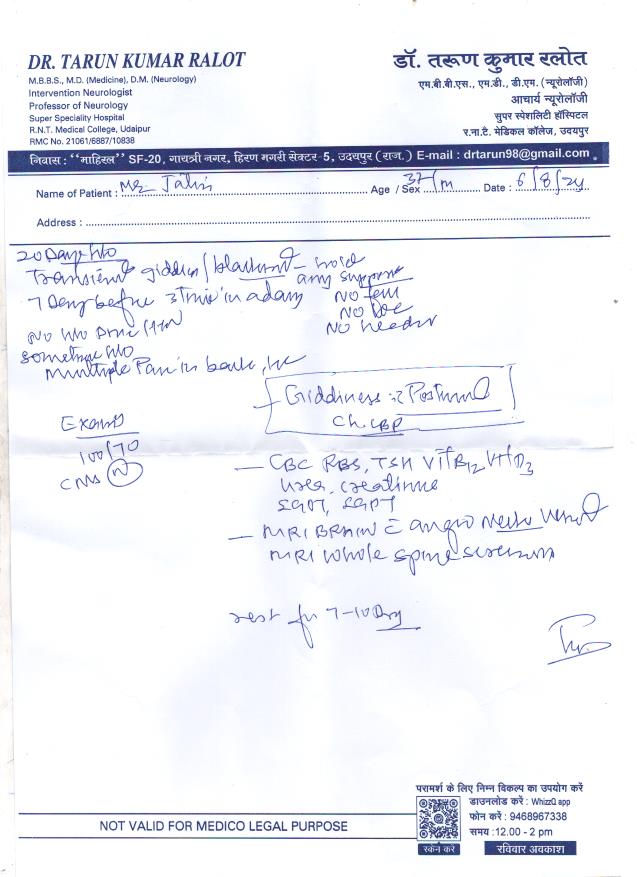 DR. TARUN KUMAR RALOT
M.B.B.S., M.D. (Medicine), D.M. (Neurology)
Intervention Neurologist
Professor of Neurology
Super Speciality Hospital
R.N.T. Medical College, Udaipur
RMC No. 21061/6887/10838
डॉ. तरूण कुमार रलोत
एम.बी.बी.एस., एम.डी., डी.एम. (न्यूरोलॉजी)
आचार्य न्यूरोलॉजी
सुपर स्पेशलिटी हॉस्पिटल
र.ना.टै. मेडिकल कॉलेज, उदयपुर
निवास : "माहिरल" SF-20, गायत्री नगर, हिरण मगरी सेक्टर-5, उदयपुर (राज.) E-mail : drtarun98@gmail.com
Name of Patient : Age / Sex 37/M Date : 6/8/24
Address :
20 Days H/o
Transient giddin/
any support
7 Day before 3 time in a day
No H/o
sometime H/o
multiple Pain in
Giddiness Postural
100/70
CNS N
CBC RBS, TSH VitB12 VitD3
Urea, creatinine
SGOT, SGPT
MRI BRAIN c angio
MRI whole spine screening
rest for 7-10 Day
NOT VALID FOR MEDICO LEGAL PURPOSE
परामर्श के लिए निम्न विकल्प का उपयोग करें
डाउनलोड करें : WhizzQ app
फोन करें : 9468967338
समय :12.00 - 2 pm
स्कॅन करें
रविवार अवकाश